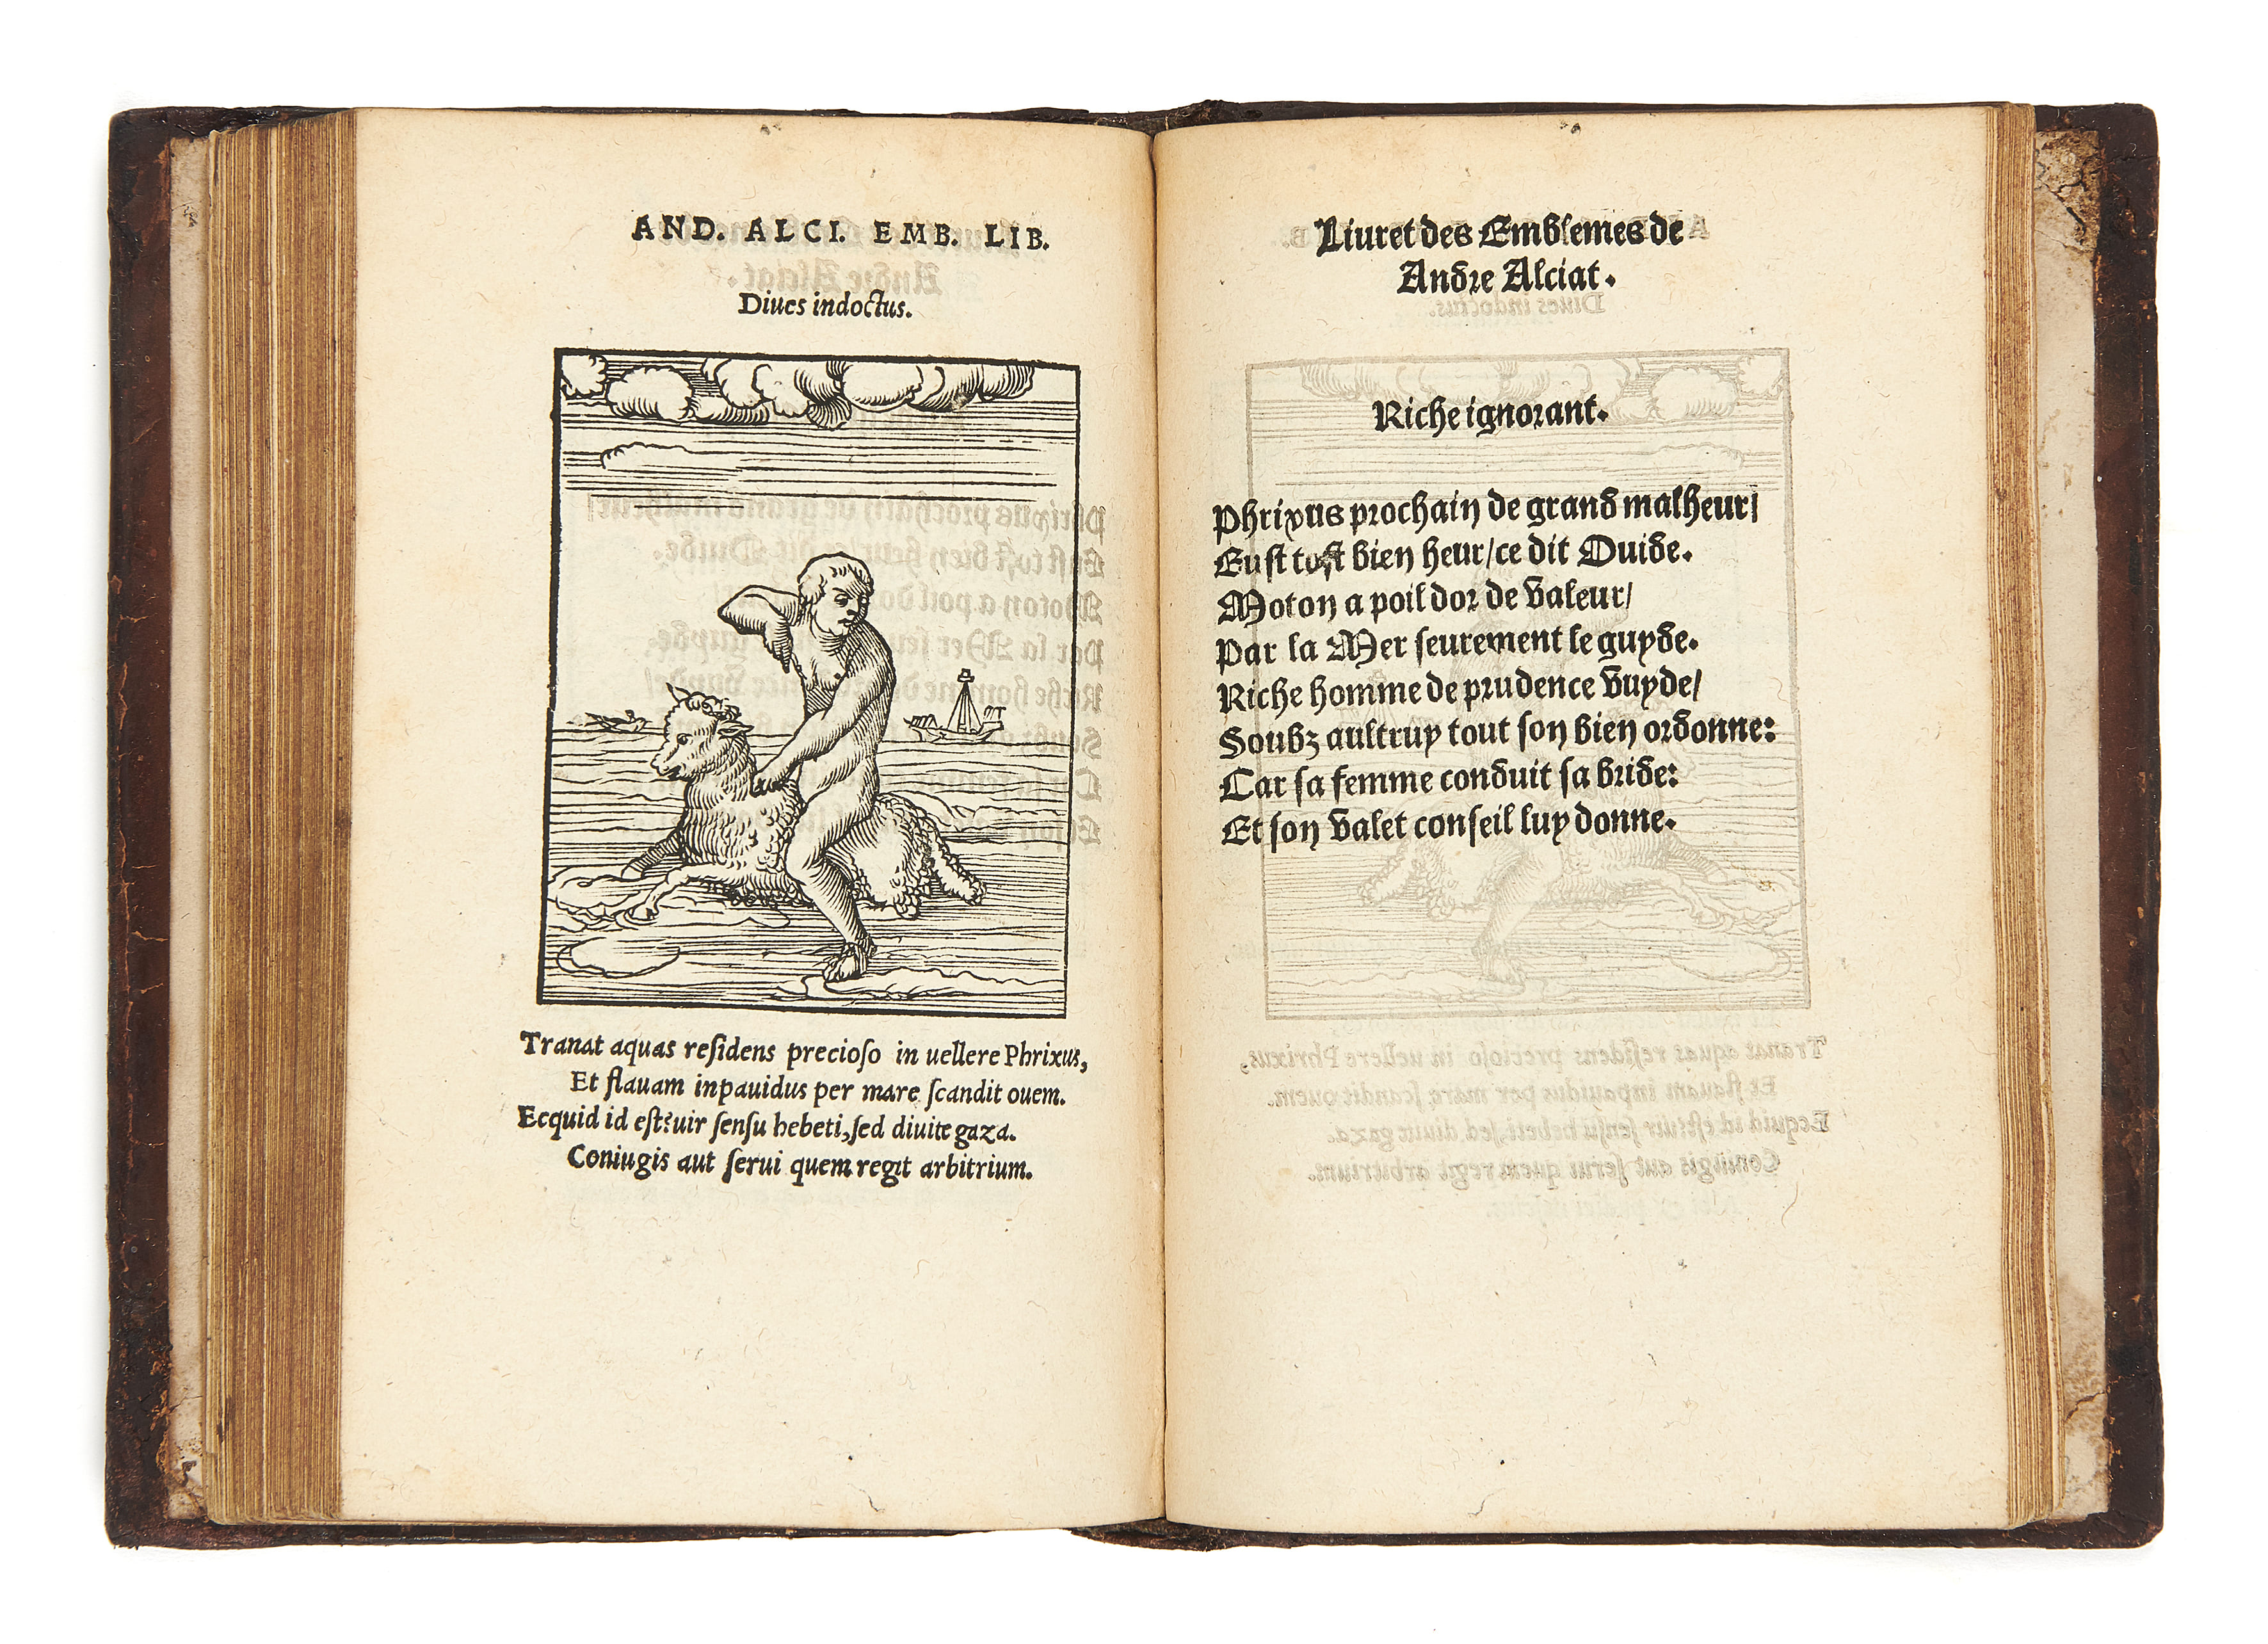 AND. ALCI. EMB. LIB.
Diues indoctus.
Tranat aquas reſidens precioſo in uellere Phrixus,
Et flauam inpauidus per mare ſcandit ouem.
Ecquid id eſt? uir ſenſu hebeti, ſed diuite gaza.
Coniugis aut ſerui quem regit arbitrium.
Liuret des Emblemes de
Andre Alciat.
Riche ignorant.
Phrixus prochain de grand malheur/
Euſt toſt bien heur/ce dit Ouide.
Moton a poil dor de valeur/
Par la Mer ſeurement le guyde.
Riche homme de prudence vuyde/
Soubz aultruy tout ſon bien ordonne:
Car ſa femme conduit ſa bride:
Et ſon valet conſeil luy donne.